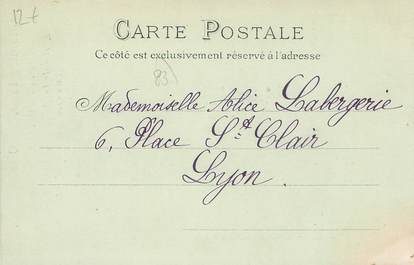 12 €
CARTE POSTALE
Ce côté est exclusivement réservé à l'adresse
83
Mademoiselle Alice Labergerie
6, Place St Clair
Lyon.